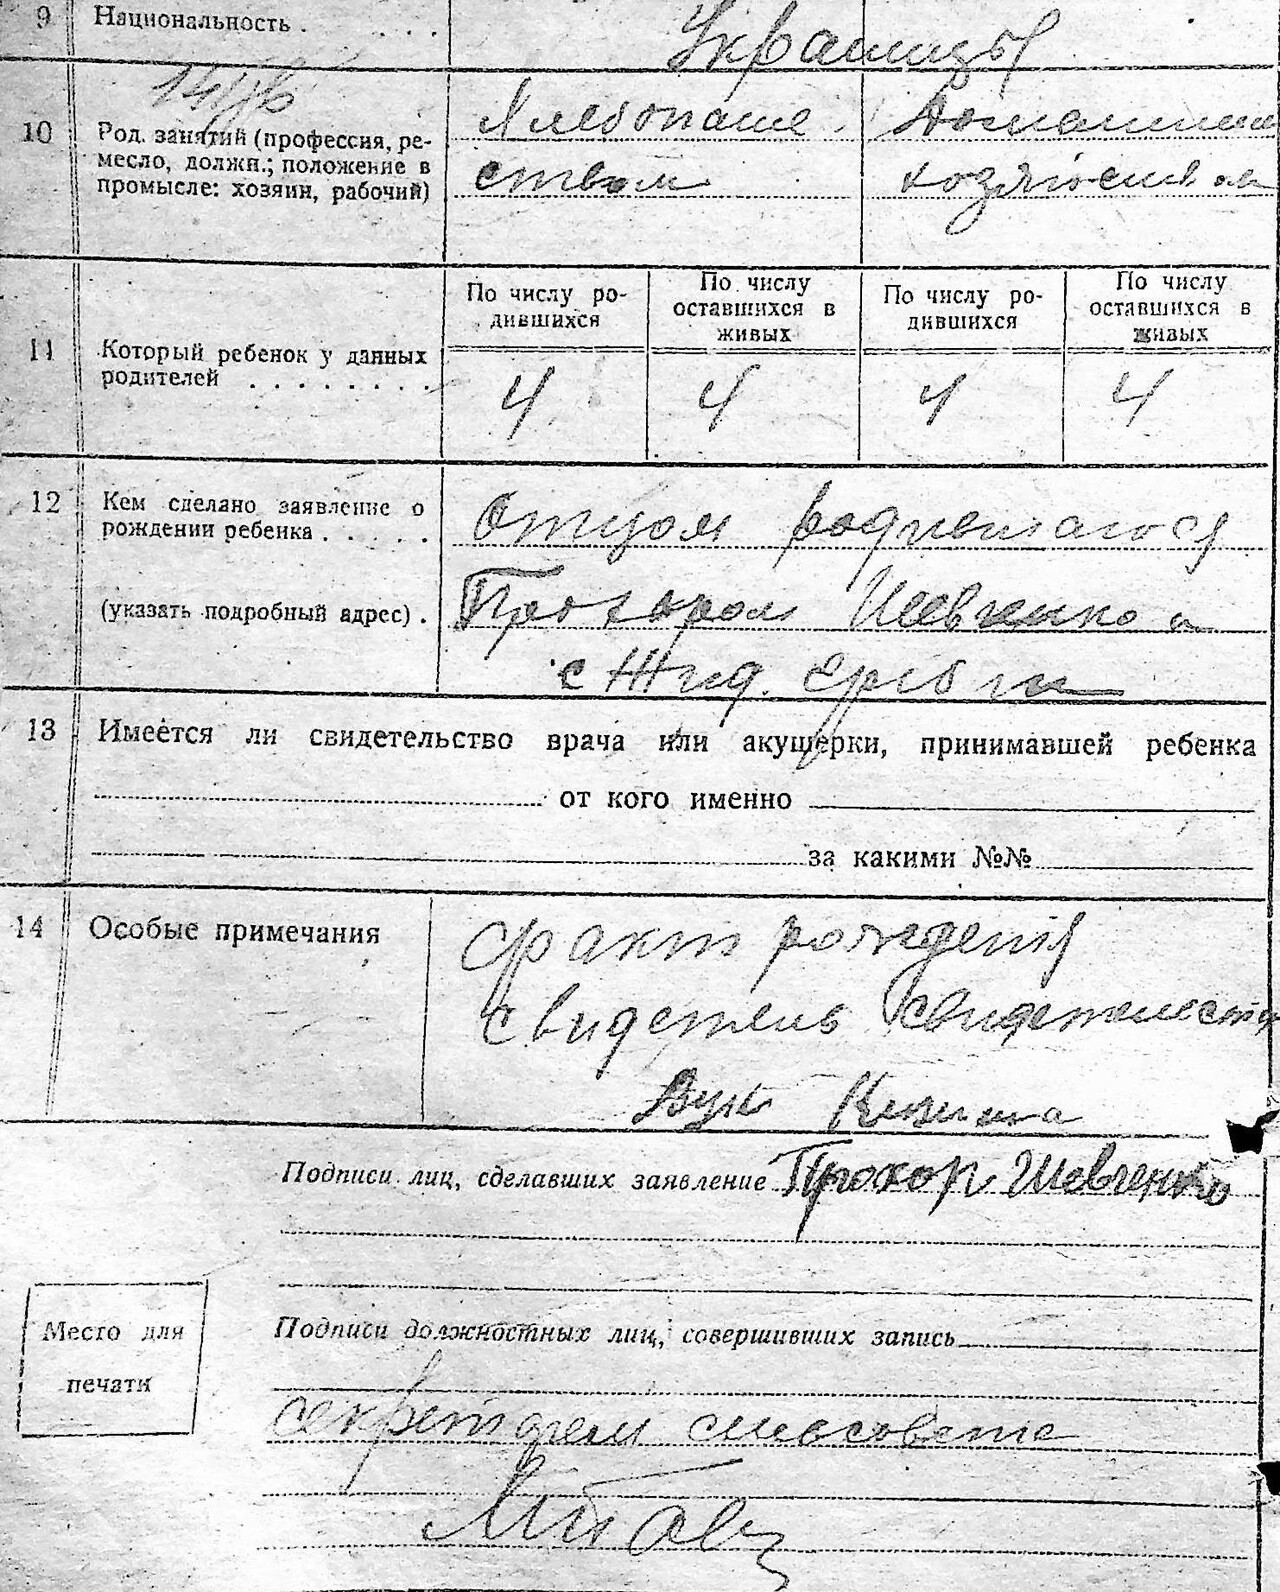 9 Национальность . . . . Украинцы
10 Род. занятий (профессия, ре-
месло, должн.; положение в
промысле: хозяин, рабочий)
Хлебопаше Домашним
ством хозяйством
11 Который ребенок у данных
родителей . . . . . . . .
По числу ро-
дившихся
По числу
оставшихся в
живых
По числу ро-
дившихся
По числу
оставшихся в
живых
4 4 4 4
12 Кем сделано заявление о
рождении ребенка . . . . .
(указать подробный адрес) .
Отцом
Прохором Шевченко
с Жид.
13 Имеётся ли свидетельство врача или акушерки, принимавшей ребенка
от кого именно
за какими №№
14 Особые примечания
факт рождения
свидетель
Подписи лиц, сделавших заявление Прохор Шевченко
Место для
печати
Подписи должностных лиц, совершивших запись
секретарем сельсовета